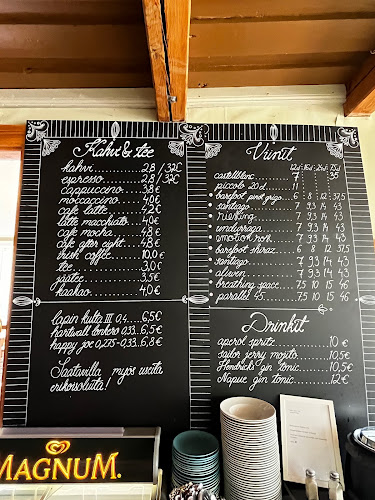 Kahvi & tee
kahvi 2,8 / 3,2€
espresso 2,8 / 3,2€
cappuccino 3,8 €
moccaccino 4,0€
cafe latte 4,2 €
latte macchiato 4,0€
cafe mocha 4,8 €
cafe after eight 4,8 €
irish coffee 10,0 €
tee 3,0€
jäätee 3,5€
kaakao 4,0€
lapin kulta III 0,4 6,5€
hartwall lonkero 0,33 6,5€
happy joe 0,275-0,33 6,8€
Saatavilla myös useita
erikoisoluita!
Viinit
12cl 16cl 24cl 75cl
castelblanc 7 35
piccolo 20cl 11
barefoot pinot grigio 6 8 12 37,5
santiago 7 9,3 14 43
riesling 7 9,3 14 43
7 9,3 14 43
emotion 7 9,3 14 43
barefoot shiraz 6 8 12 37,5
santiago 7 9,3 14 43
7 9,3 14 43
breathing space 7,5 10 15 46
parallel 45 7,5 10 15 46
Drinkit
aperol spritz 10 €
sailor jerry mojito 10,5€
Hendrick's gin tonic 10,5€
Napue gin tonic 12 €
MAGNUM.